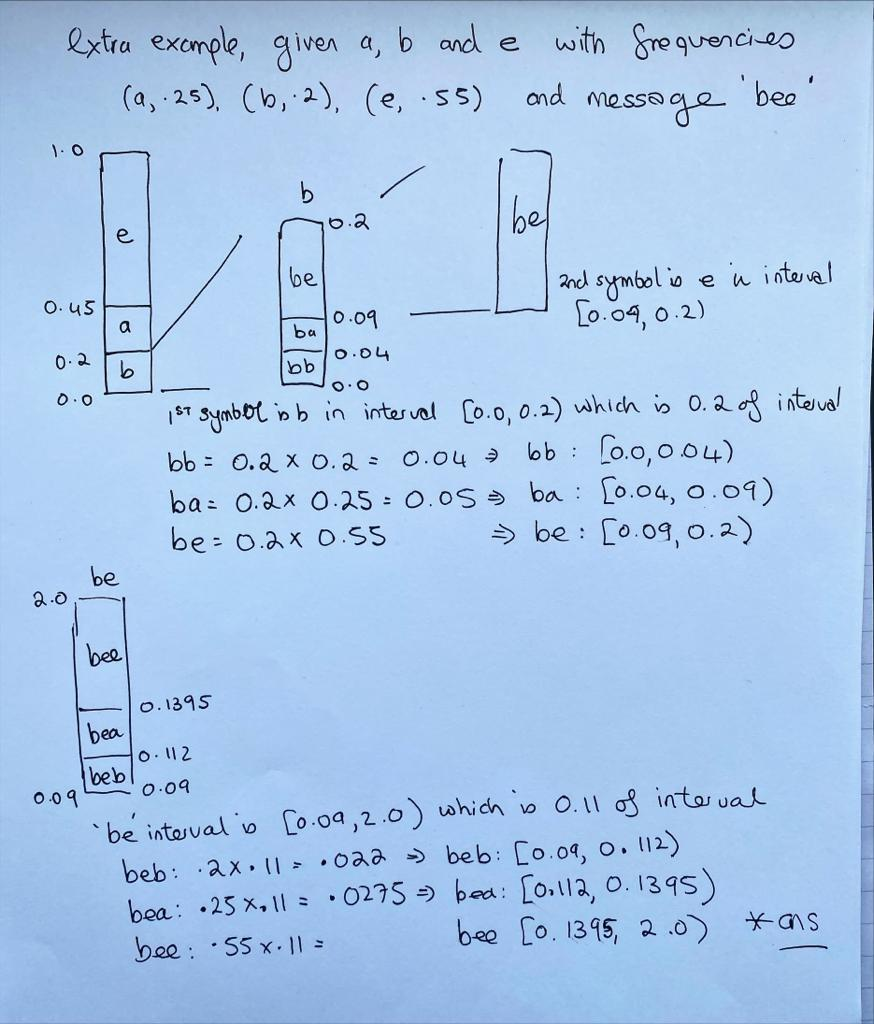 Extra example, given a, b and e with frequencies
(a, .25), (b, .2), (e, .55) and message 'bee'
1.0
e
0.45
a
0.2
b
0.0
b
0.2
be
0.09
ba
0.04
bb
0.0
be
2nd symbol is e in interval
[0.09, 0.2)
1ST symbol is b in interval [0.0, 0.2) which is 0.2 of interval
bb = 0.2 x 0.2 = 0.04 ⇒ bb : [0.0, 0.04)
ba = 0.2 x 0.25 = 0.05 ⇒ ba : [0.04, 0.09)
be = 0.2 x 0.55 ⇒ be : [0.09, 0.2)
be
2.0
bee
0.1395
bea
0.112
beb
0.09 0.09
'be' interval is [0.09, 2.0) which is 0.11 of interval
beb : .2 x .11 = .022 ⇒ beb: [0.09, 0.112)
bea : .25 x .11 = .0275 ⇒ bea: [0.112, 0.1395)
bee : .55 x .11 = bee [0.1395, 2.0) * ans